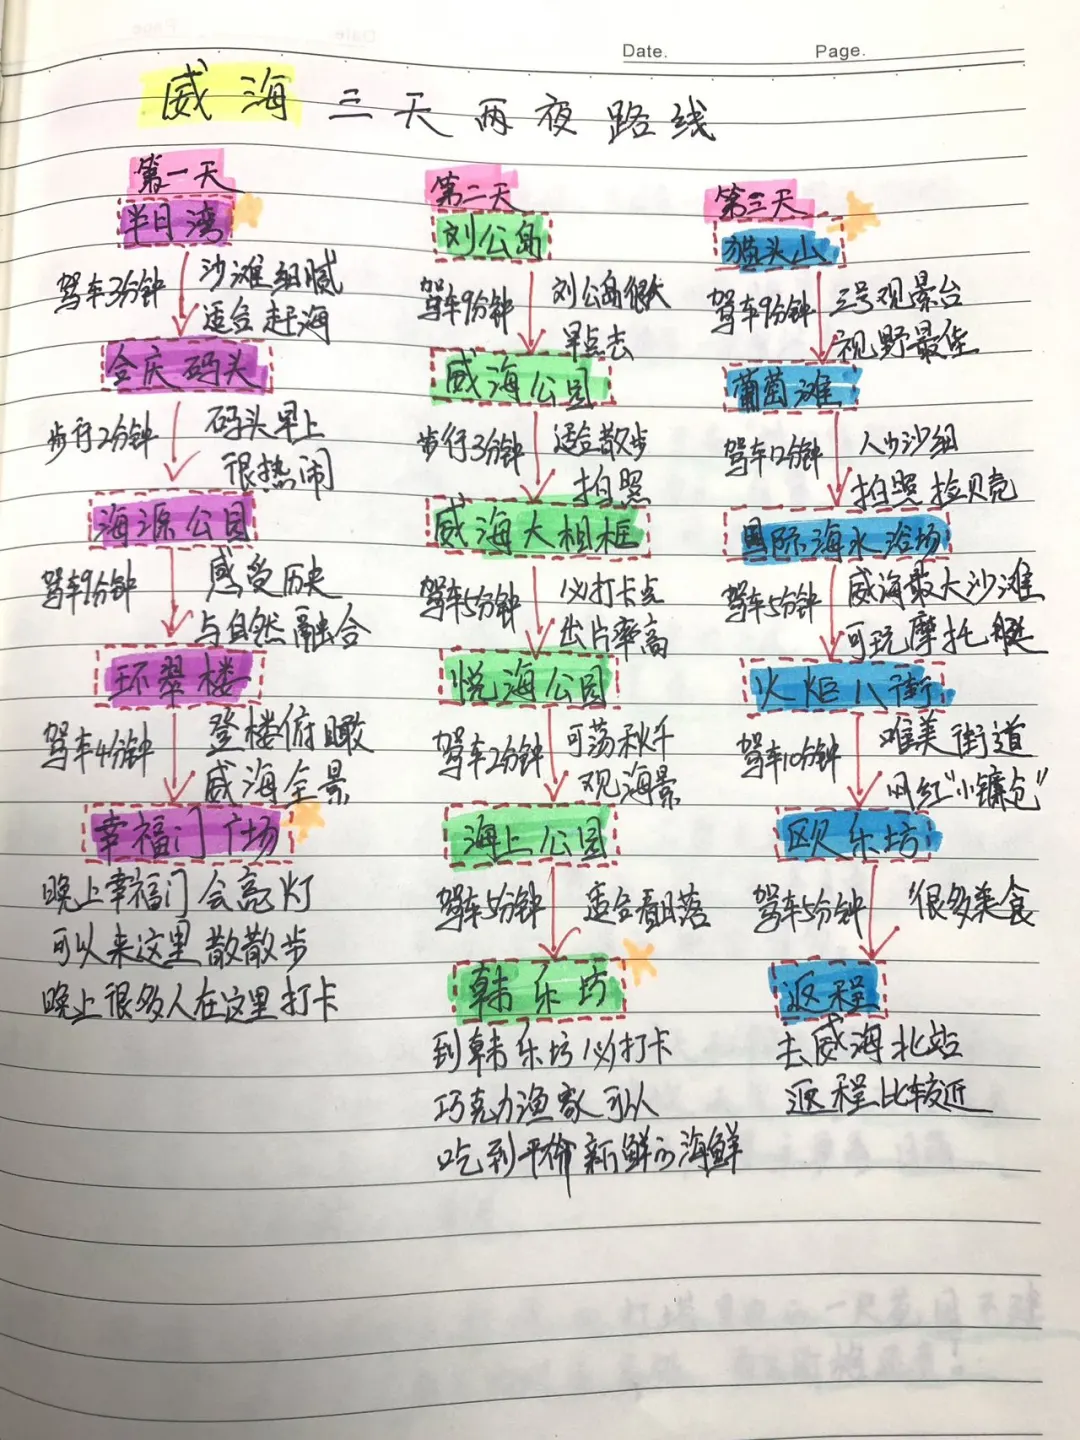 Date. Page.
威海三天两夜路线
第一天
半月湾
驾车3分钟
沙滩细腻
适合赶海
合庆码头
步行2分钟
码头早上
很热闹
海源公园
驾车9分钟
感受历史
与自然融合
环翠楼
驾车4分钟
登楼俯瞰
威海全景
幸福门广场
晚上幸福门会亮灯
可以来这里散散步
晚上很多人在这里打卡
第二天
刘公岛
驾车9分钟
刘公岛很大
早点去
威海公园
步行3分钟
适合散步
拍照
威海大相框
驾车5分钟
必打卡点
出片率高
悦海公园
驾车2分钟
可荡秋千
观海景
海上公园
驾车5分钟
适合看日落
韩乐坊
到韩乐坊必打卡
巧克力渔家可以
吃到平价新鲜的海鲜
第三天
猫头山
驾车9分钟
三号观景台
视野最佳
葡萄滩
驾车12分钟
人少沙细
拍照捡贝壳
国际海水浴场
驾车5分钟
威海最大沙滩
可玩摩托艇
火炬八街
驾车10分钟
唯美街道
网红“小镰仓”
欧乐坊
驾车5分钟
很多美食
返程
去威海北站
返程比较近